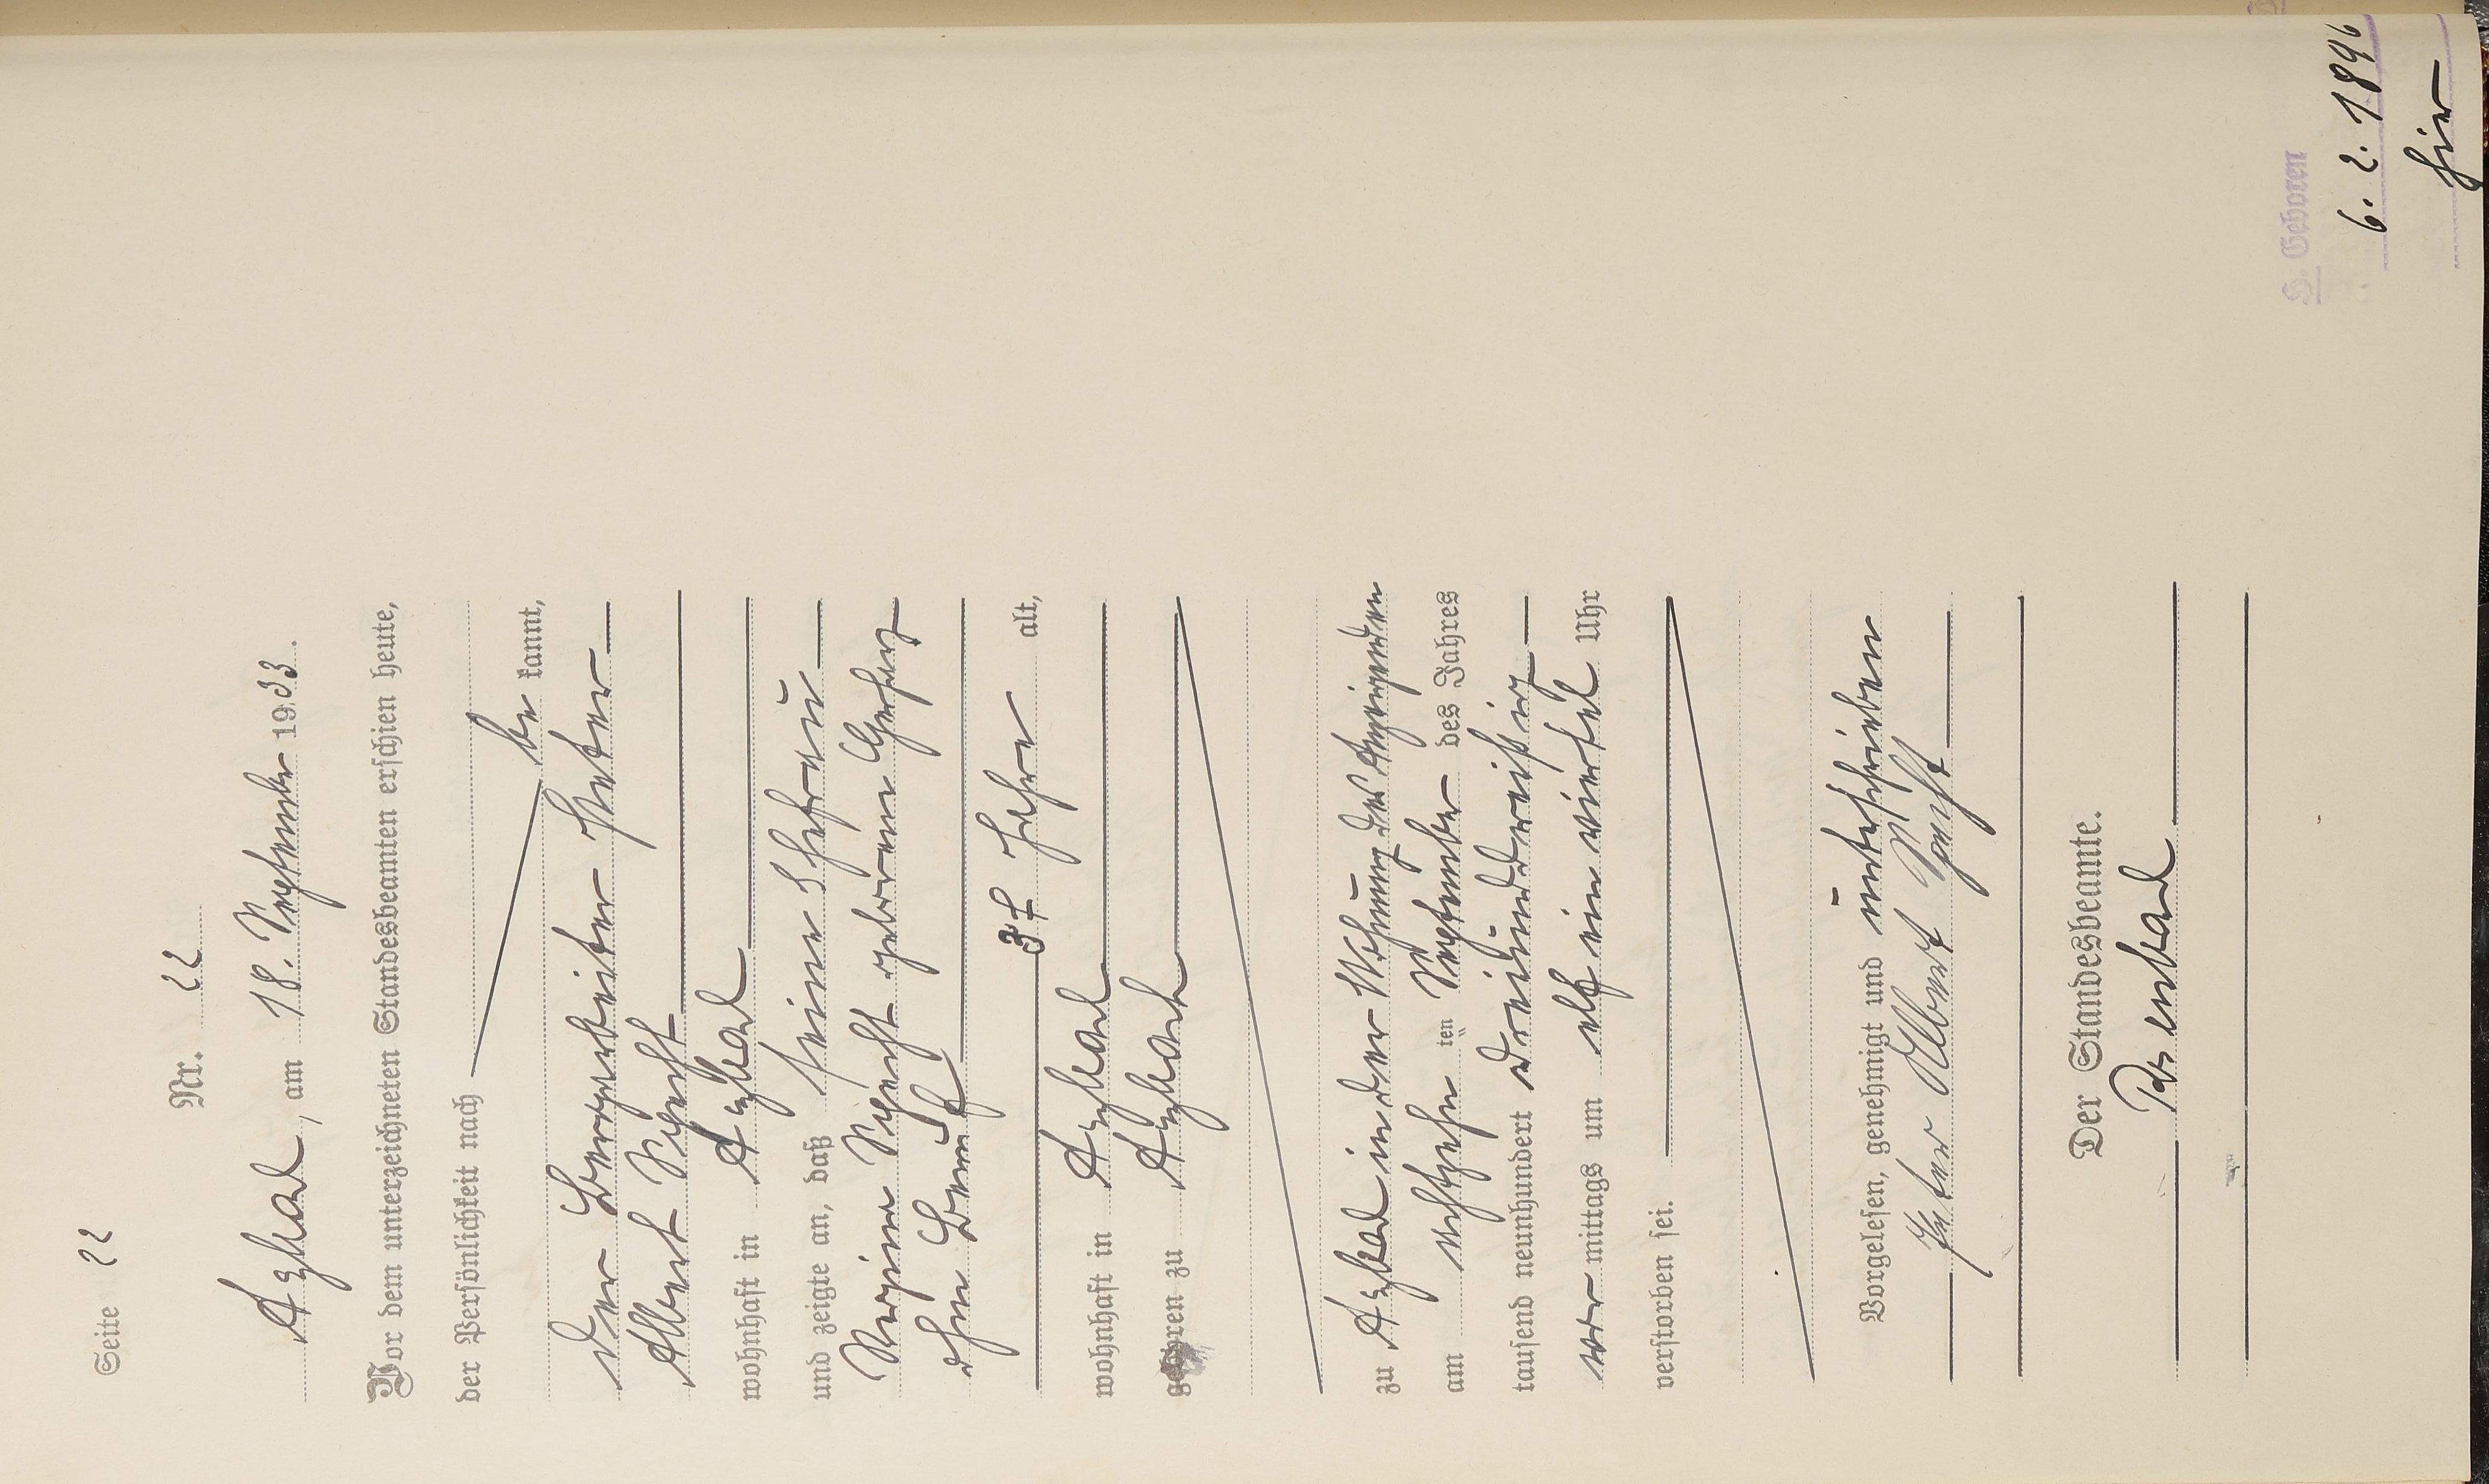 Seite 22
Nr. 22
Atzbach, am 18. September 1933.
Vor dem unterzeichneten Standesbeamten erschien heute,
der Persönlichkeit nach
be kannt,
der Bergarbeiter Peter
Albert Specht
wohnhaft in Atzbach
und zeigte an, daß seine Ehefrau
Regine Specht geborene
ohne Beruf
37 Jahre alt,
wohnhaft in Atzbach
geboren zu Atzbach
zu Atzbach in der Wohnung des Anzeigenden
am achtzehn ten September des Jahres
tausend neunhundert dreiunddreißig
vor mittags um elf ein viertel Uhr
verstorben sei.
Vorgelesen, genehmigt und unterschrieben
Peter Albert Specht
Der Standesbeamte.
H. Geboren
6. 2. 1896
hier